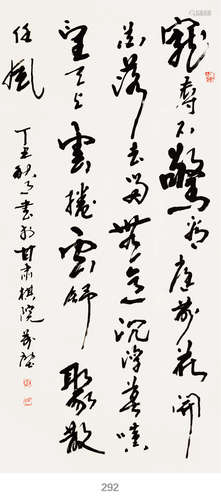 寵辱不驚看庭前花開
花落去留無意沉浮莫嘆
望天上雲捲雲舒聚散
任風
丁丑秋月書於甘肅棋院
292